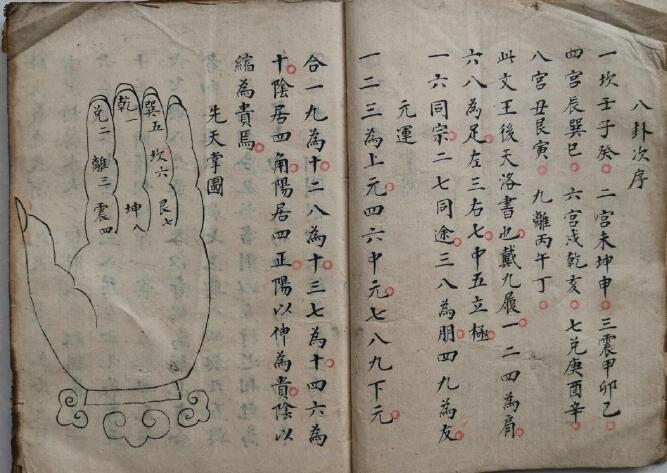 八卦次序
一坎壬子癸 二宮未坤申 三震甲卯乙
四宮辰巽巳 六宮戍乾亥 七兑庚酉辛
八宮丑艮寅 九離丙午丁
此文王後天洛書也戴九履一二四為肩
六八為足左三右七中五立極
一六同宗二七同途三八為朋四九為友
元運
一二三為上元四六中元七八九下元
合一九為十二八為十三七為十四六為
十陰居四角陽居四正陽以伸為貴陰以
縮為貴馬
先天掌圖
巽五 坎六 艮七
乾一 坤八
兑二 離三 震四